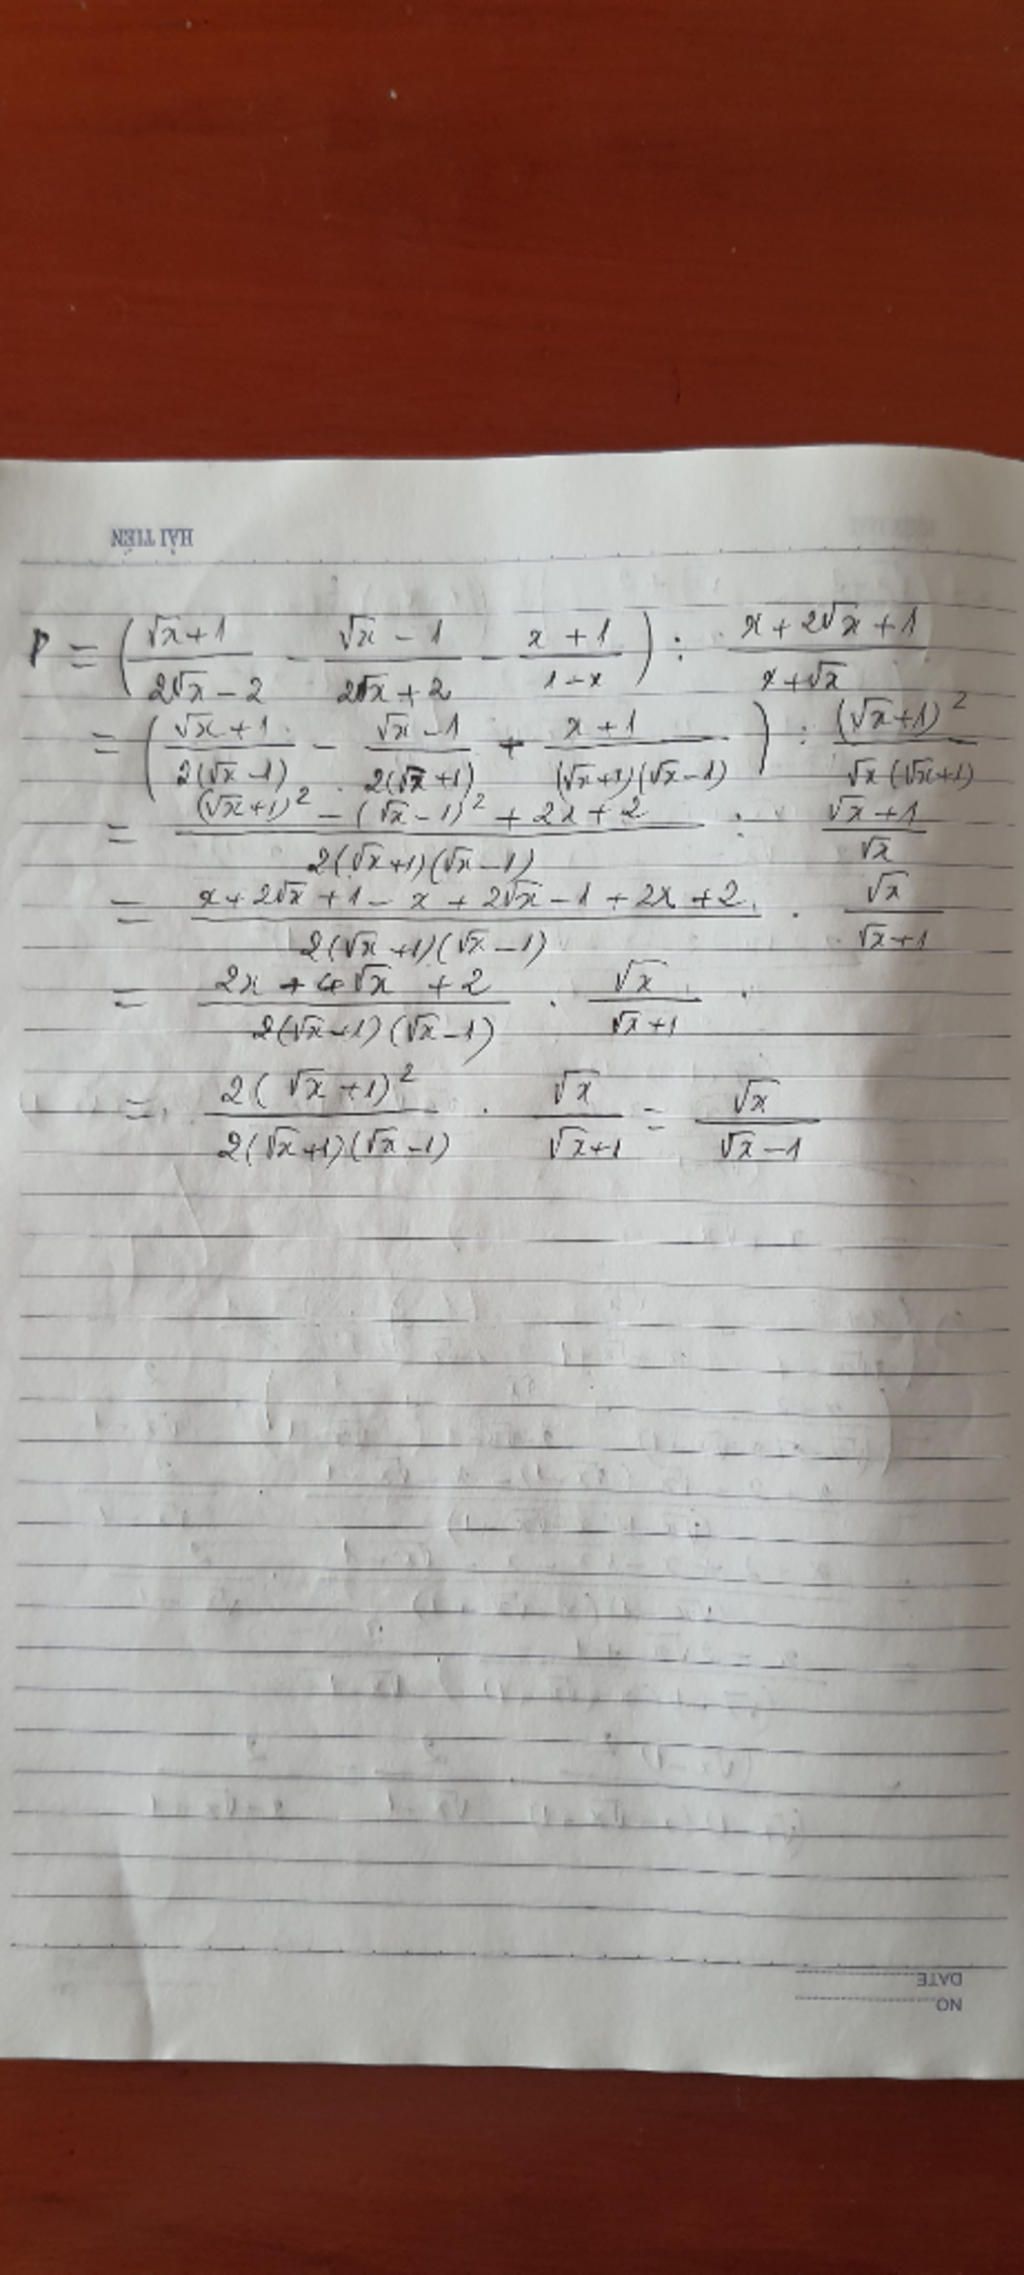 HẢI TIẾN
P = ( (√x + 1)/(2√x - 2) - (√x - 1)/(2√x + 2) - (x + 1)/(1 - x) ) : (x + 2√x + 1)/(x + √x)
= ( (√x + 1)/(2(√x - 1)) - (√x - 1)/(2(√x + 1)) + (x + 1)/((√x + 1)(√x - 1)) ) : (√x + 1)²/(√x(√x + 1))
= ((√x + 1)² - (√x - 1)² + 2x + 2)/(2(√x + 1)(√x - 1)) : (√x + 1)/√x
= (x + 2√x + 1 - x + 2√x - 1 + 2x + 2)/(2(√x + 1)(√x - 1)) . √x/(√x + 1)
= (2x + 4√x + 2)/(2(√x + 1)(√x - 1)) . √x/(√x + 1) .
= 2(√x + 1)²/(2(√x + 1)(√x - 1)) . √x/(√x + 1) = √x/(√x - 1)
DATE
NO